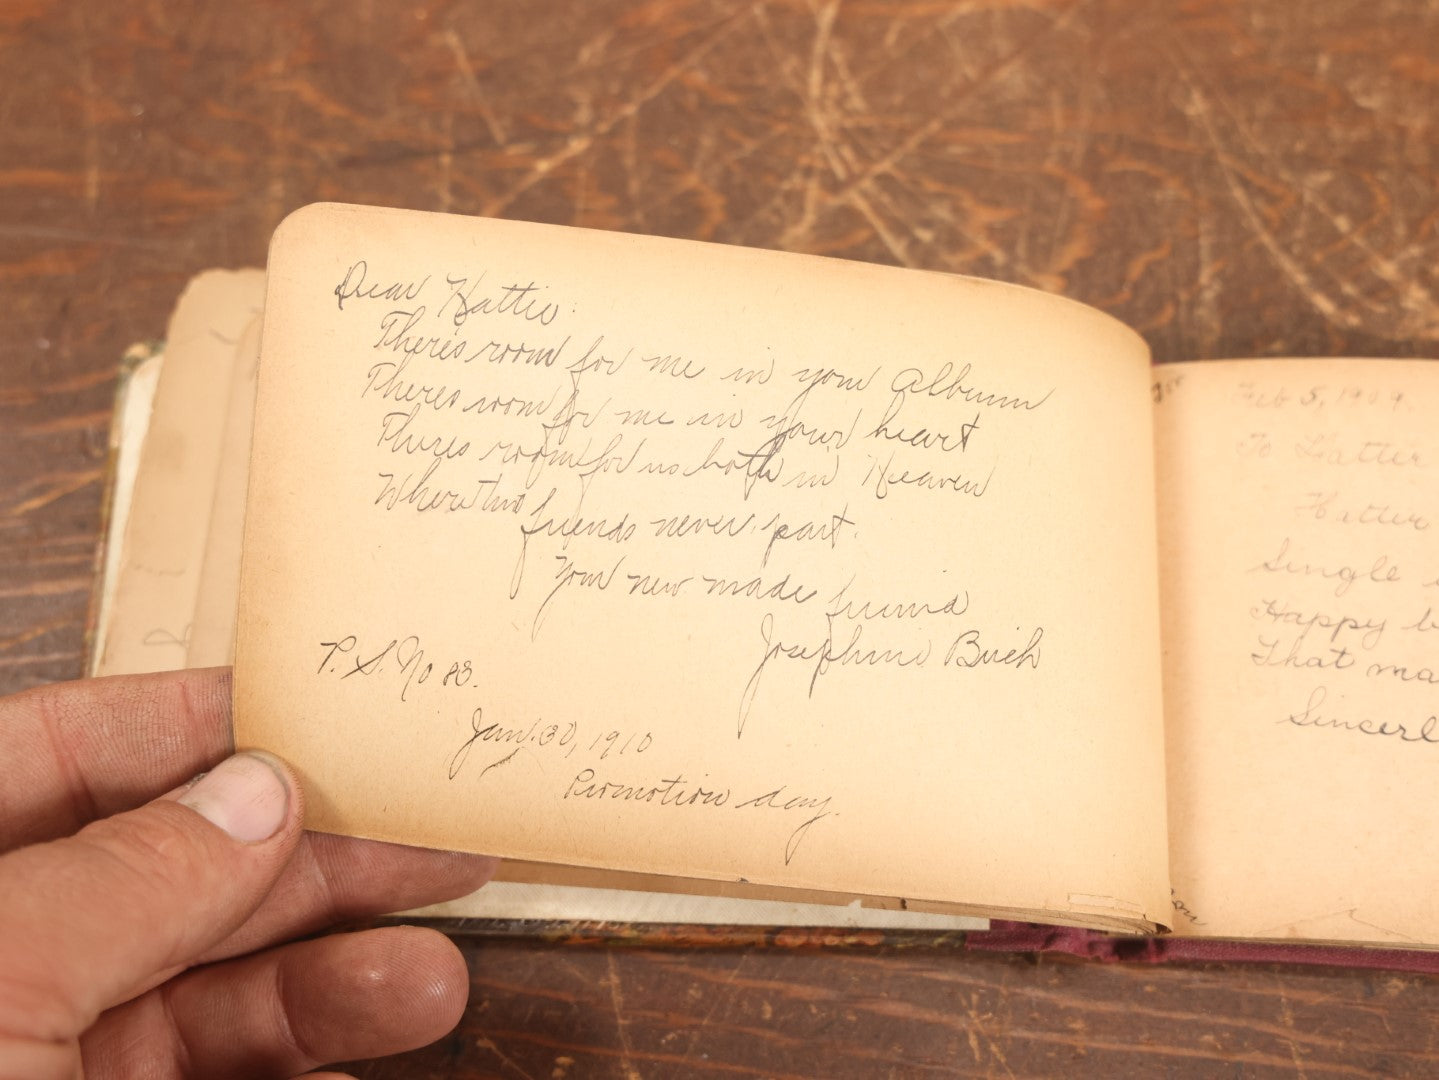 Dear Hattie:
There's room for me in your album
Theres room for me in your heart
Theres room for us both in Heaven
Where true friends never part.
Your new made friend
Josephine Birch
P. S. No 83.
Jan. 30, 1910
Promotion day.
Feb 5, 1909.
To Hattie
Hattie
Single
Happy b
That ma
Sincerl